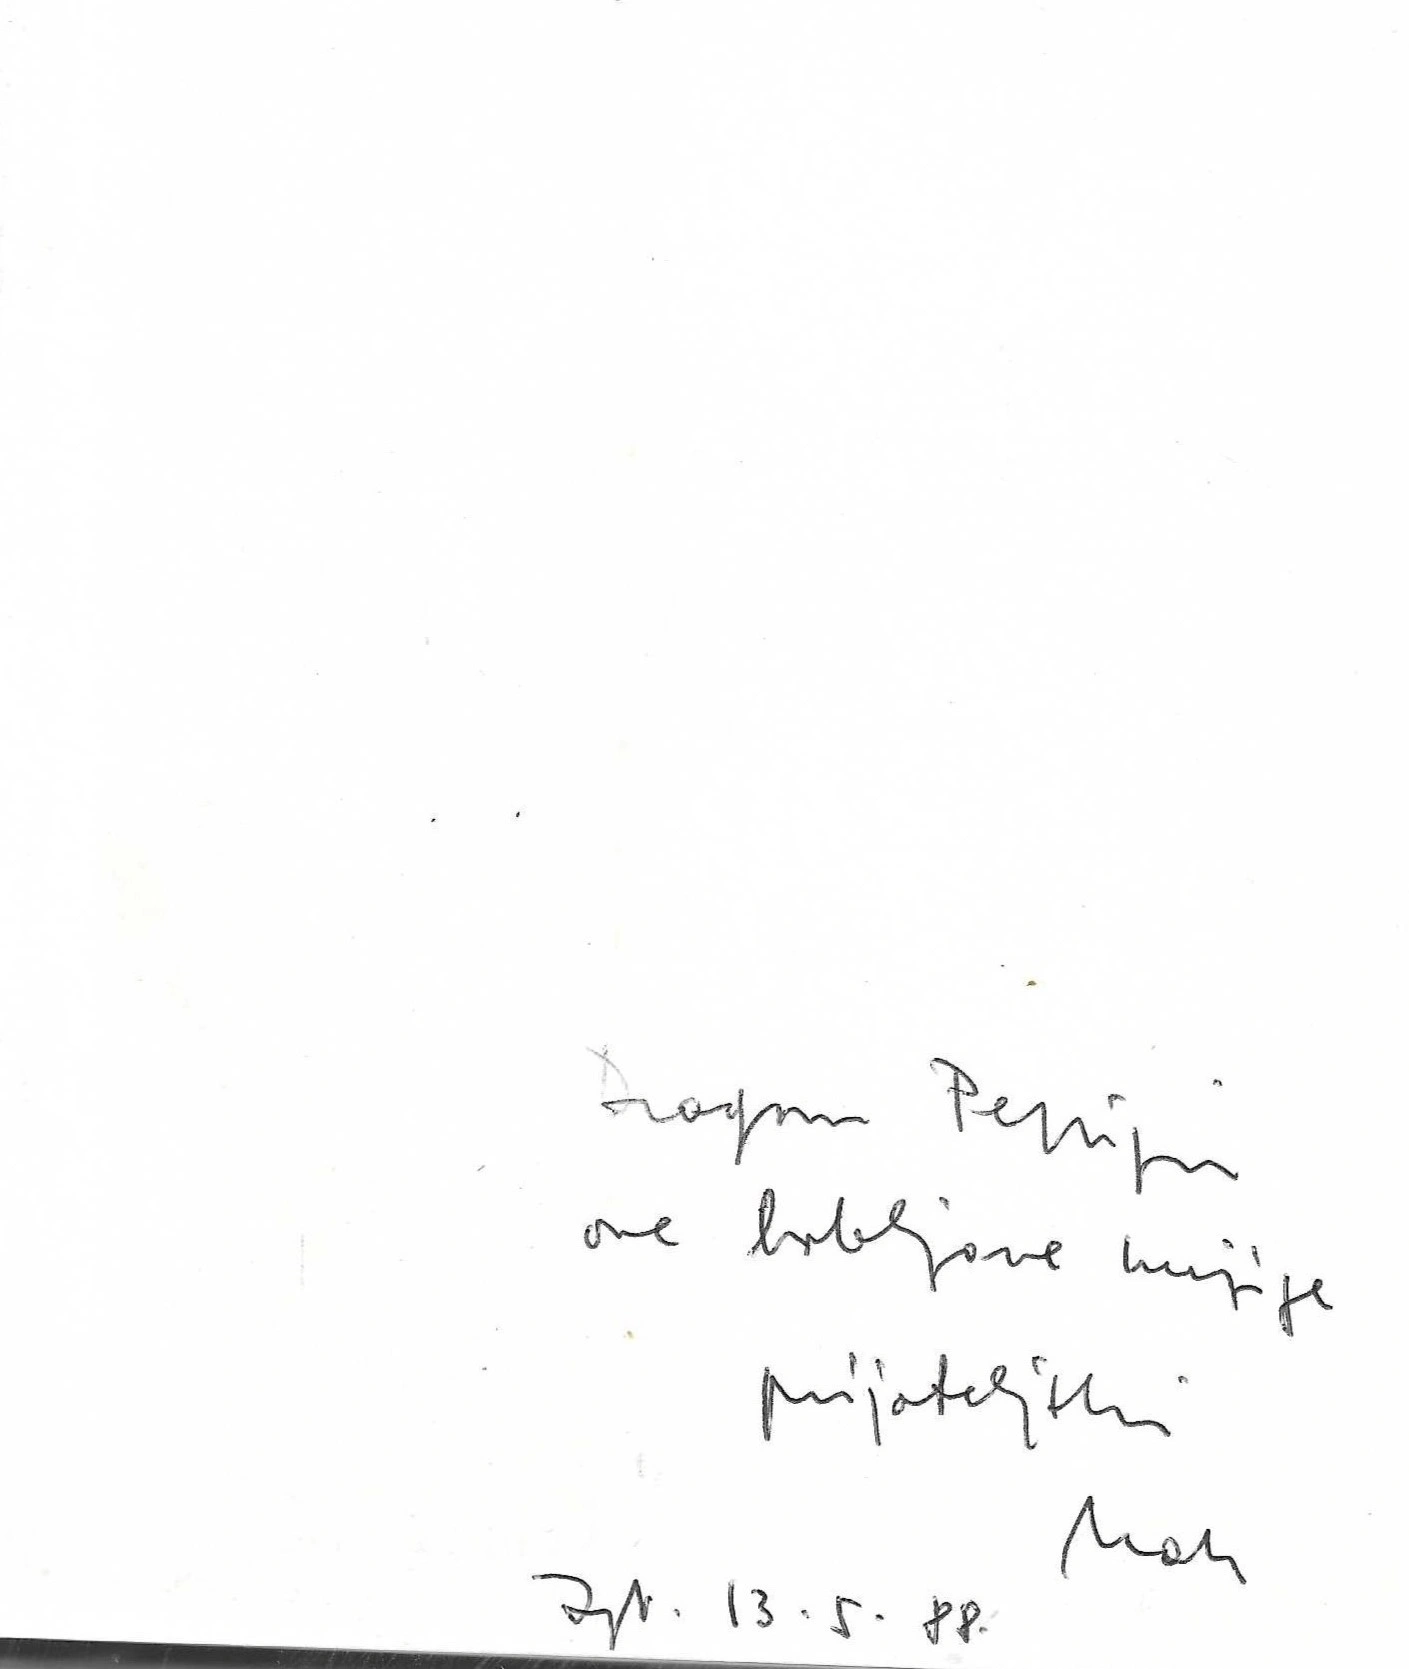 Dragom Peppiju
ove bibljove knjige
prijateljski
Mak
Zgb. 13. 5. 88.